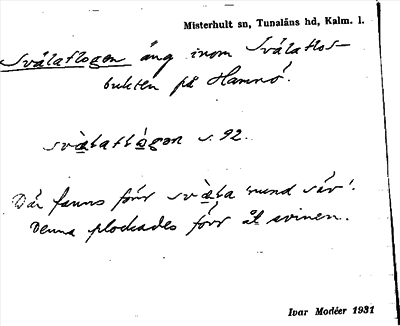 Misterhult sn, Tunaläns hd, Kalm. l.
Svälatlogen äng inom Svälatlos-
bukten på Hamnö.
svä̀latlǻgən s. 92.
Där fanns förr svä̀la rund säv!
Denna plockades förr åt svinen.
Ivar Modéer 1931